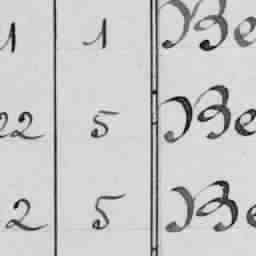 1 1 Be
22 5 Be
2 5 Be